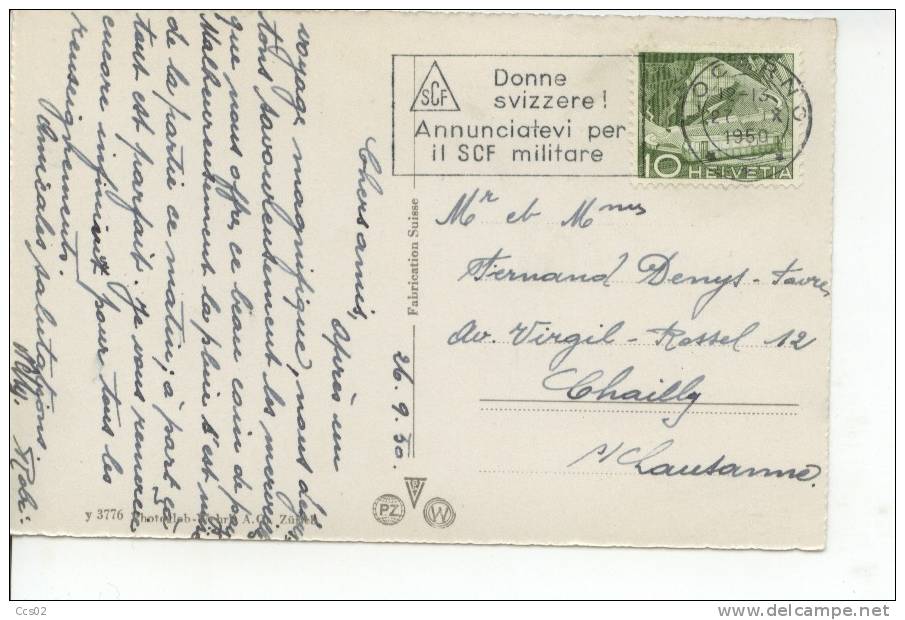 26. 9. 50.
Chers amis,
Après un
voyage magnifique, nous
que nous offre ce beau coin de
Malheureusement la pluie s'est mise
de la partie ce matin; à part ça
tout est parfait. Je vous remercie
encore infiniment pour tous les
renseignements.
Amicales salutations.
SCF
Donne
svizzere!
Annunciatevi per
il SCF militare
LOCARNO
1950
10 HELVETIA
Mr et Mme
Fernand Denys-Favre
Av. Virgil-Rossel 12
Chailly
s/Lausanne.
Fabrication Suisse
PZ
W
y 3776 Photoglob-Wehrli A.G. Zürich
Ccs02
www.delcampe.net